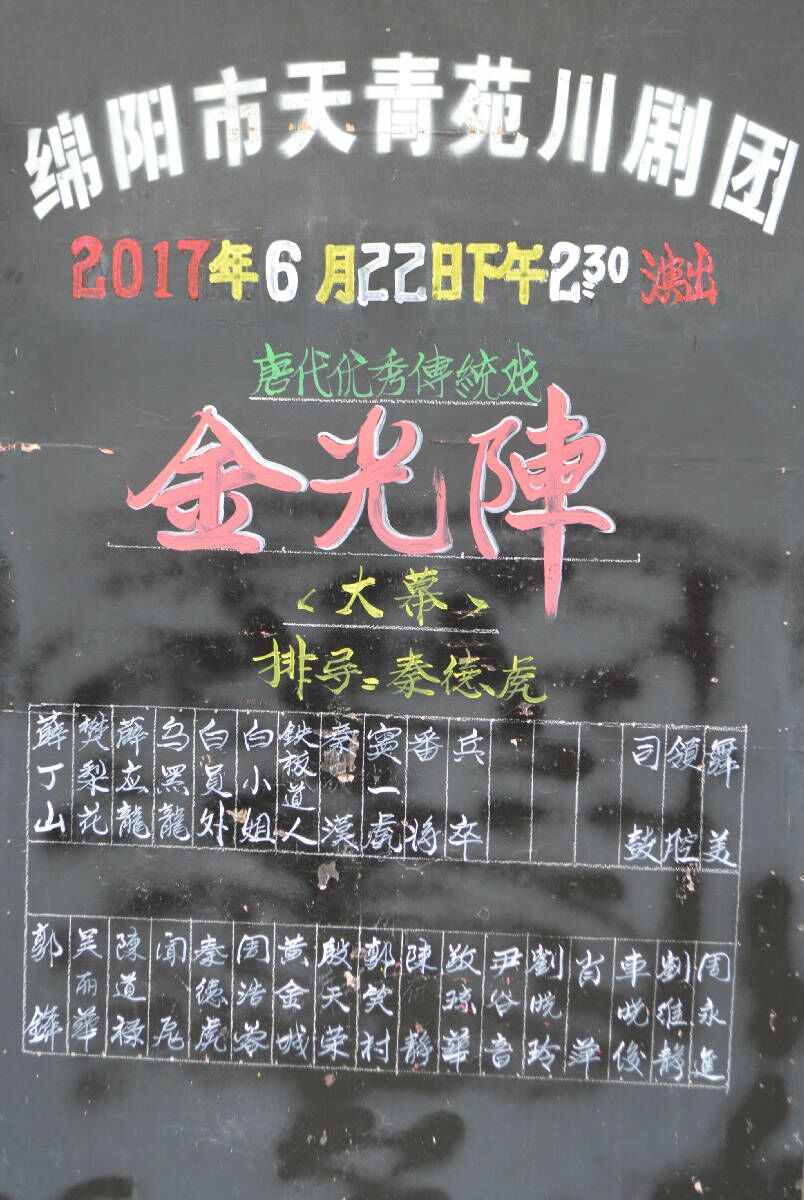 绵阳市天青苑川剧团
2017年6月22日下午2:30演出
唐代优秀傳統戏
金光陣
<大幕>
排导=秦德虎
薛丁山
樊梨花
薛应龍
乌黑龍
白員外
白小姐
鉄板道人
秦漢
窦一虎
番将
兵卒
司鼓
領腔
舞美
郭鋒
吴丽華
陳道禄
闻尨
秦德虎
周浩蓉
黄金城
殷天荣
郭笑村
陳静
敬琼華
尹谷音
劉晓玲
肖萍
車晓俊
劉维静
周永進